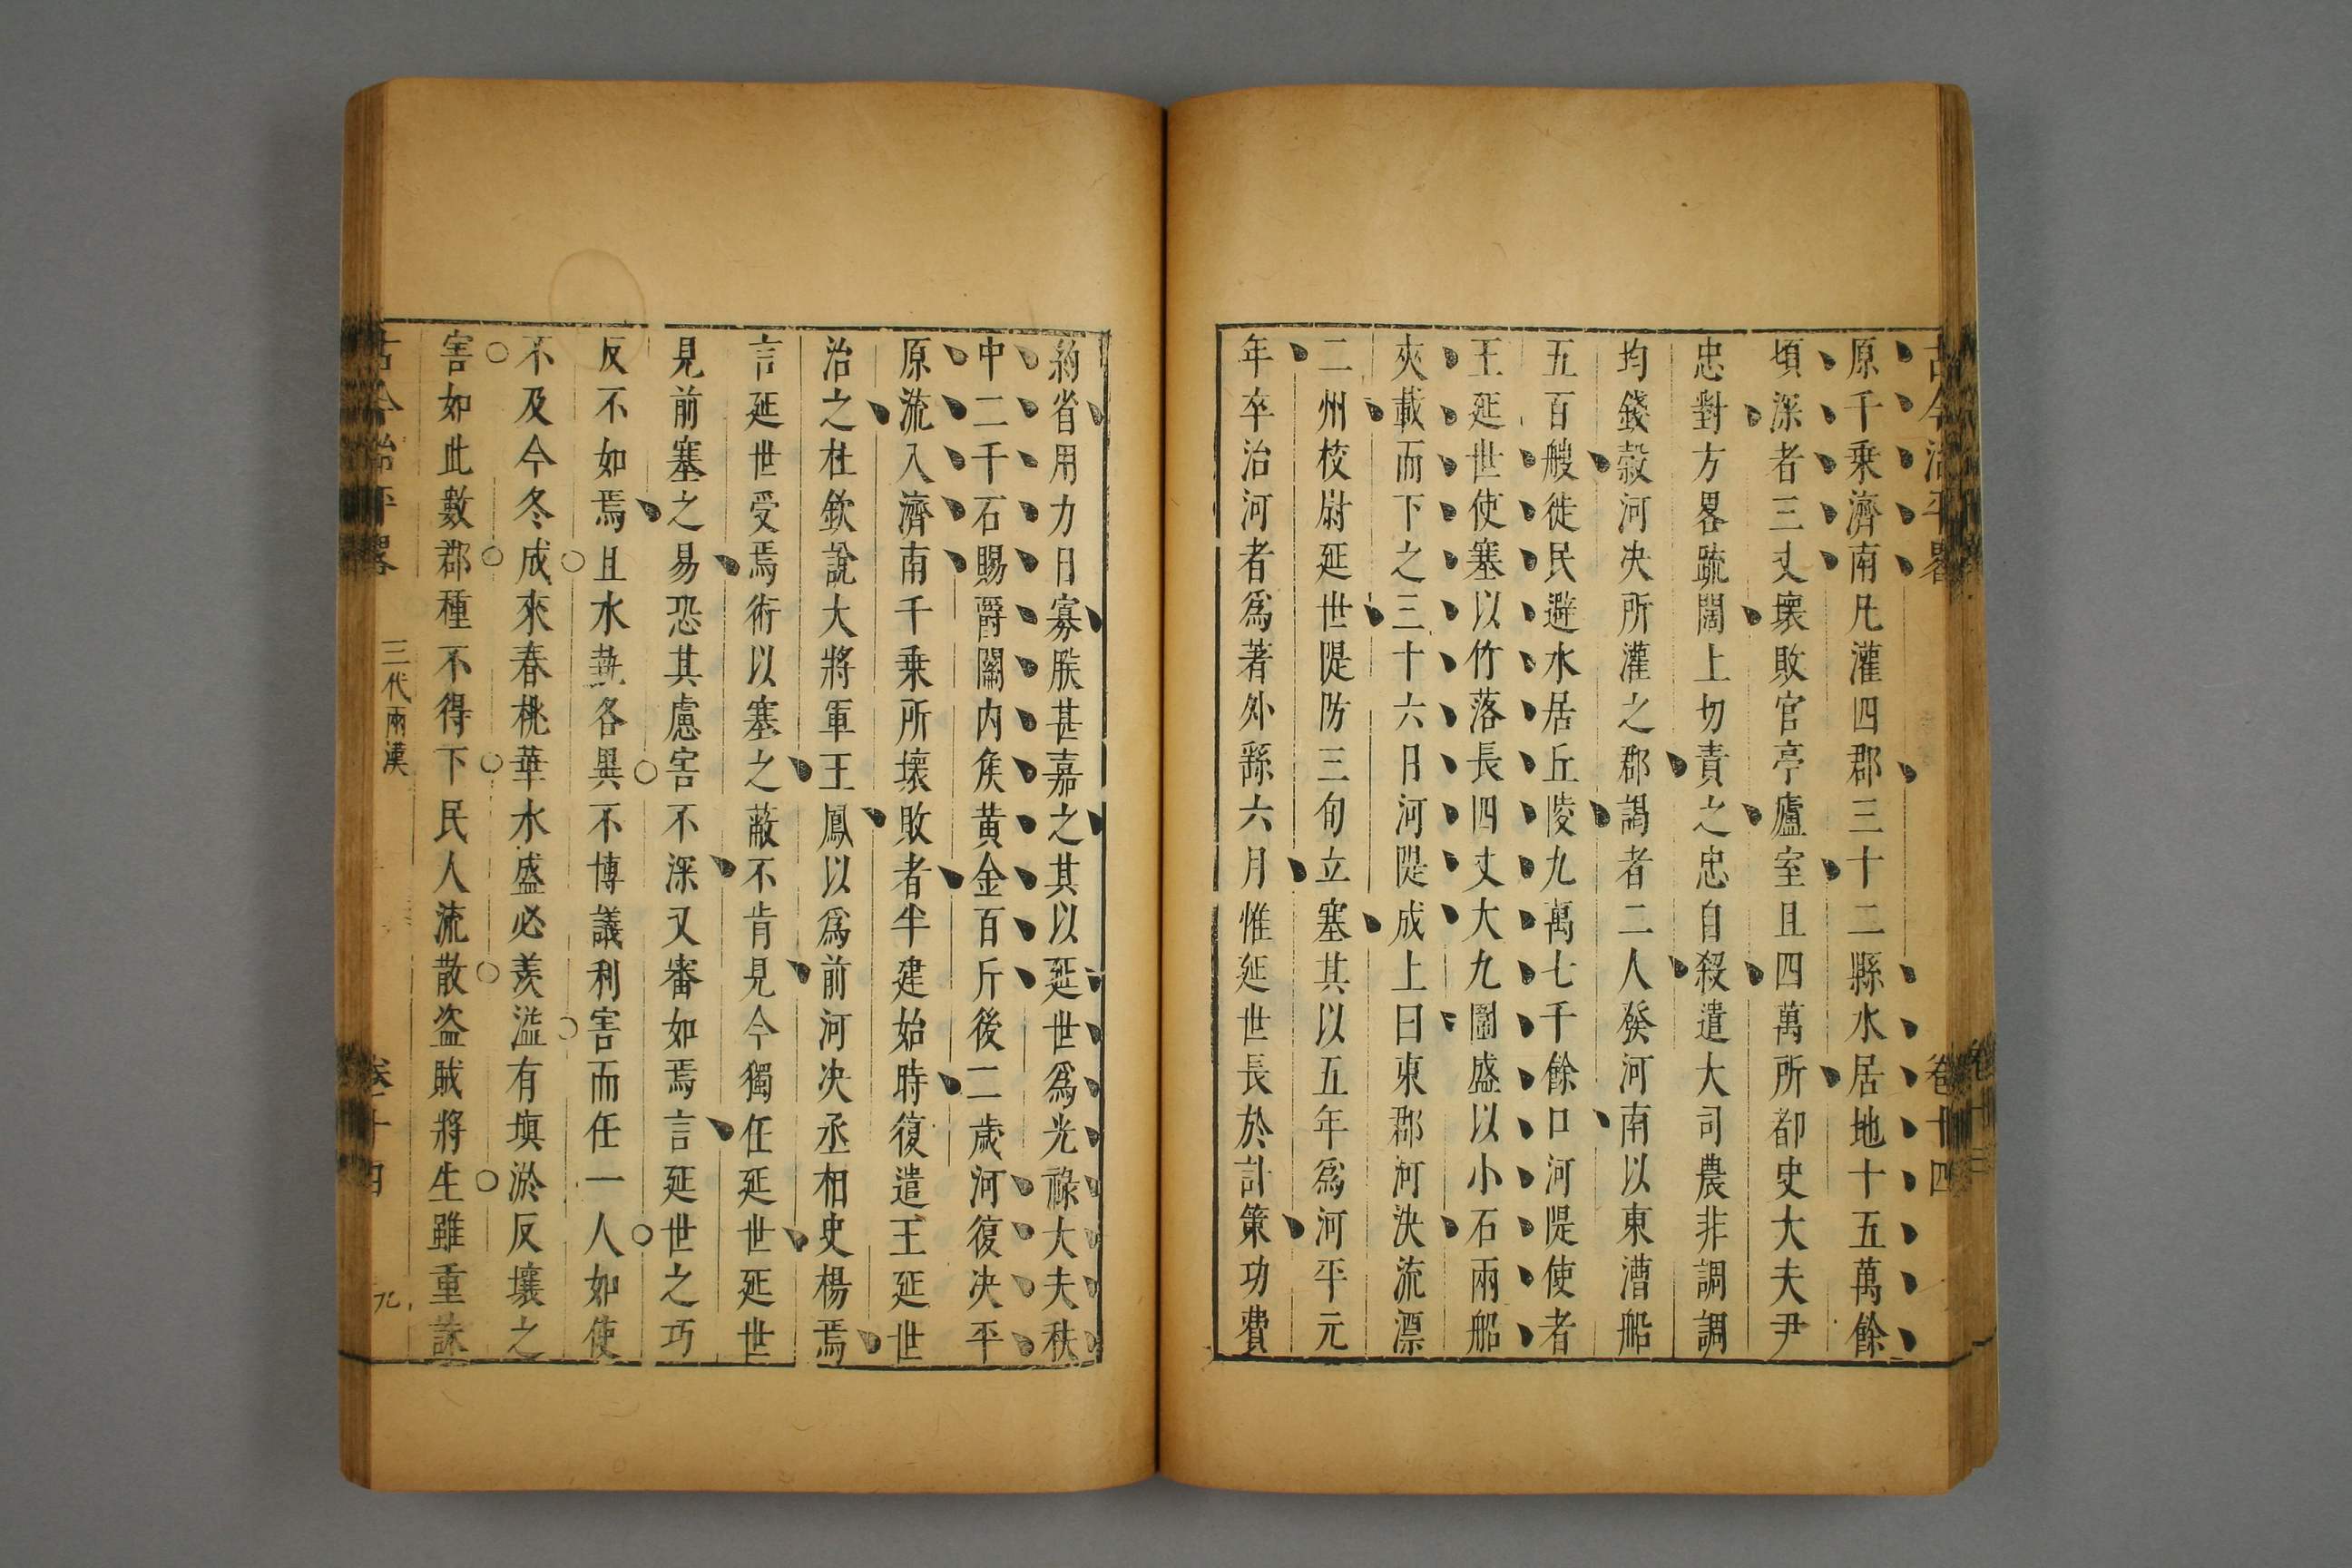 古今治平畧
卷十四
原千乗濟南凡灌四郡三十二縣水居地十五萬餘
頃深者三丈壞敗官亭廬室且四萬所都史大夫尹
忠對方畧疏闊上切責之忠自殺遣大司農非調調
均錢穀河决所灌之郡謁者二人發河南以東漕船
五百艘徙民避水居丘陵九萬七千餘口河隄使者
王延世使塞以竹落長四丈大九圍盛以小石兩船
夾載而下之三十六日河隄成上曰東郡河决流漂
二州校尉延世隄防三旬立塞其以五年爲河平元
年卒治河者爲著外繇六月惟延世長於計策功費
約省用力日寡朕甚嘉之其以延世爲光祿大夫秩
中二千石賜爵關内侯黄金百斤後二歲河復决平
原流入濟南千乗所壞敗者半建始時復遣王延世
治之杜欽說大將軍王鳳以爲前河决丞相史楊焉
言延世受焉術以塞之蔽不肯見今獨任延世延世
見前塞之易恐其慮害不深又審如焉言延世之巧
反不如焉且水埶各異不博議利害而任一人如使
不及今冬成來春桃華水盛必羨溢有塡淤反壤之
害如此數郡種不得下民人流散盗賊將生雖重誅
古今治平畧
三代兩漢
卷十四
九